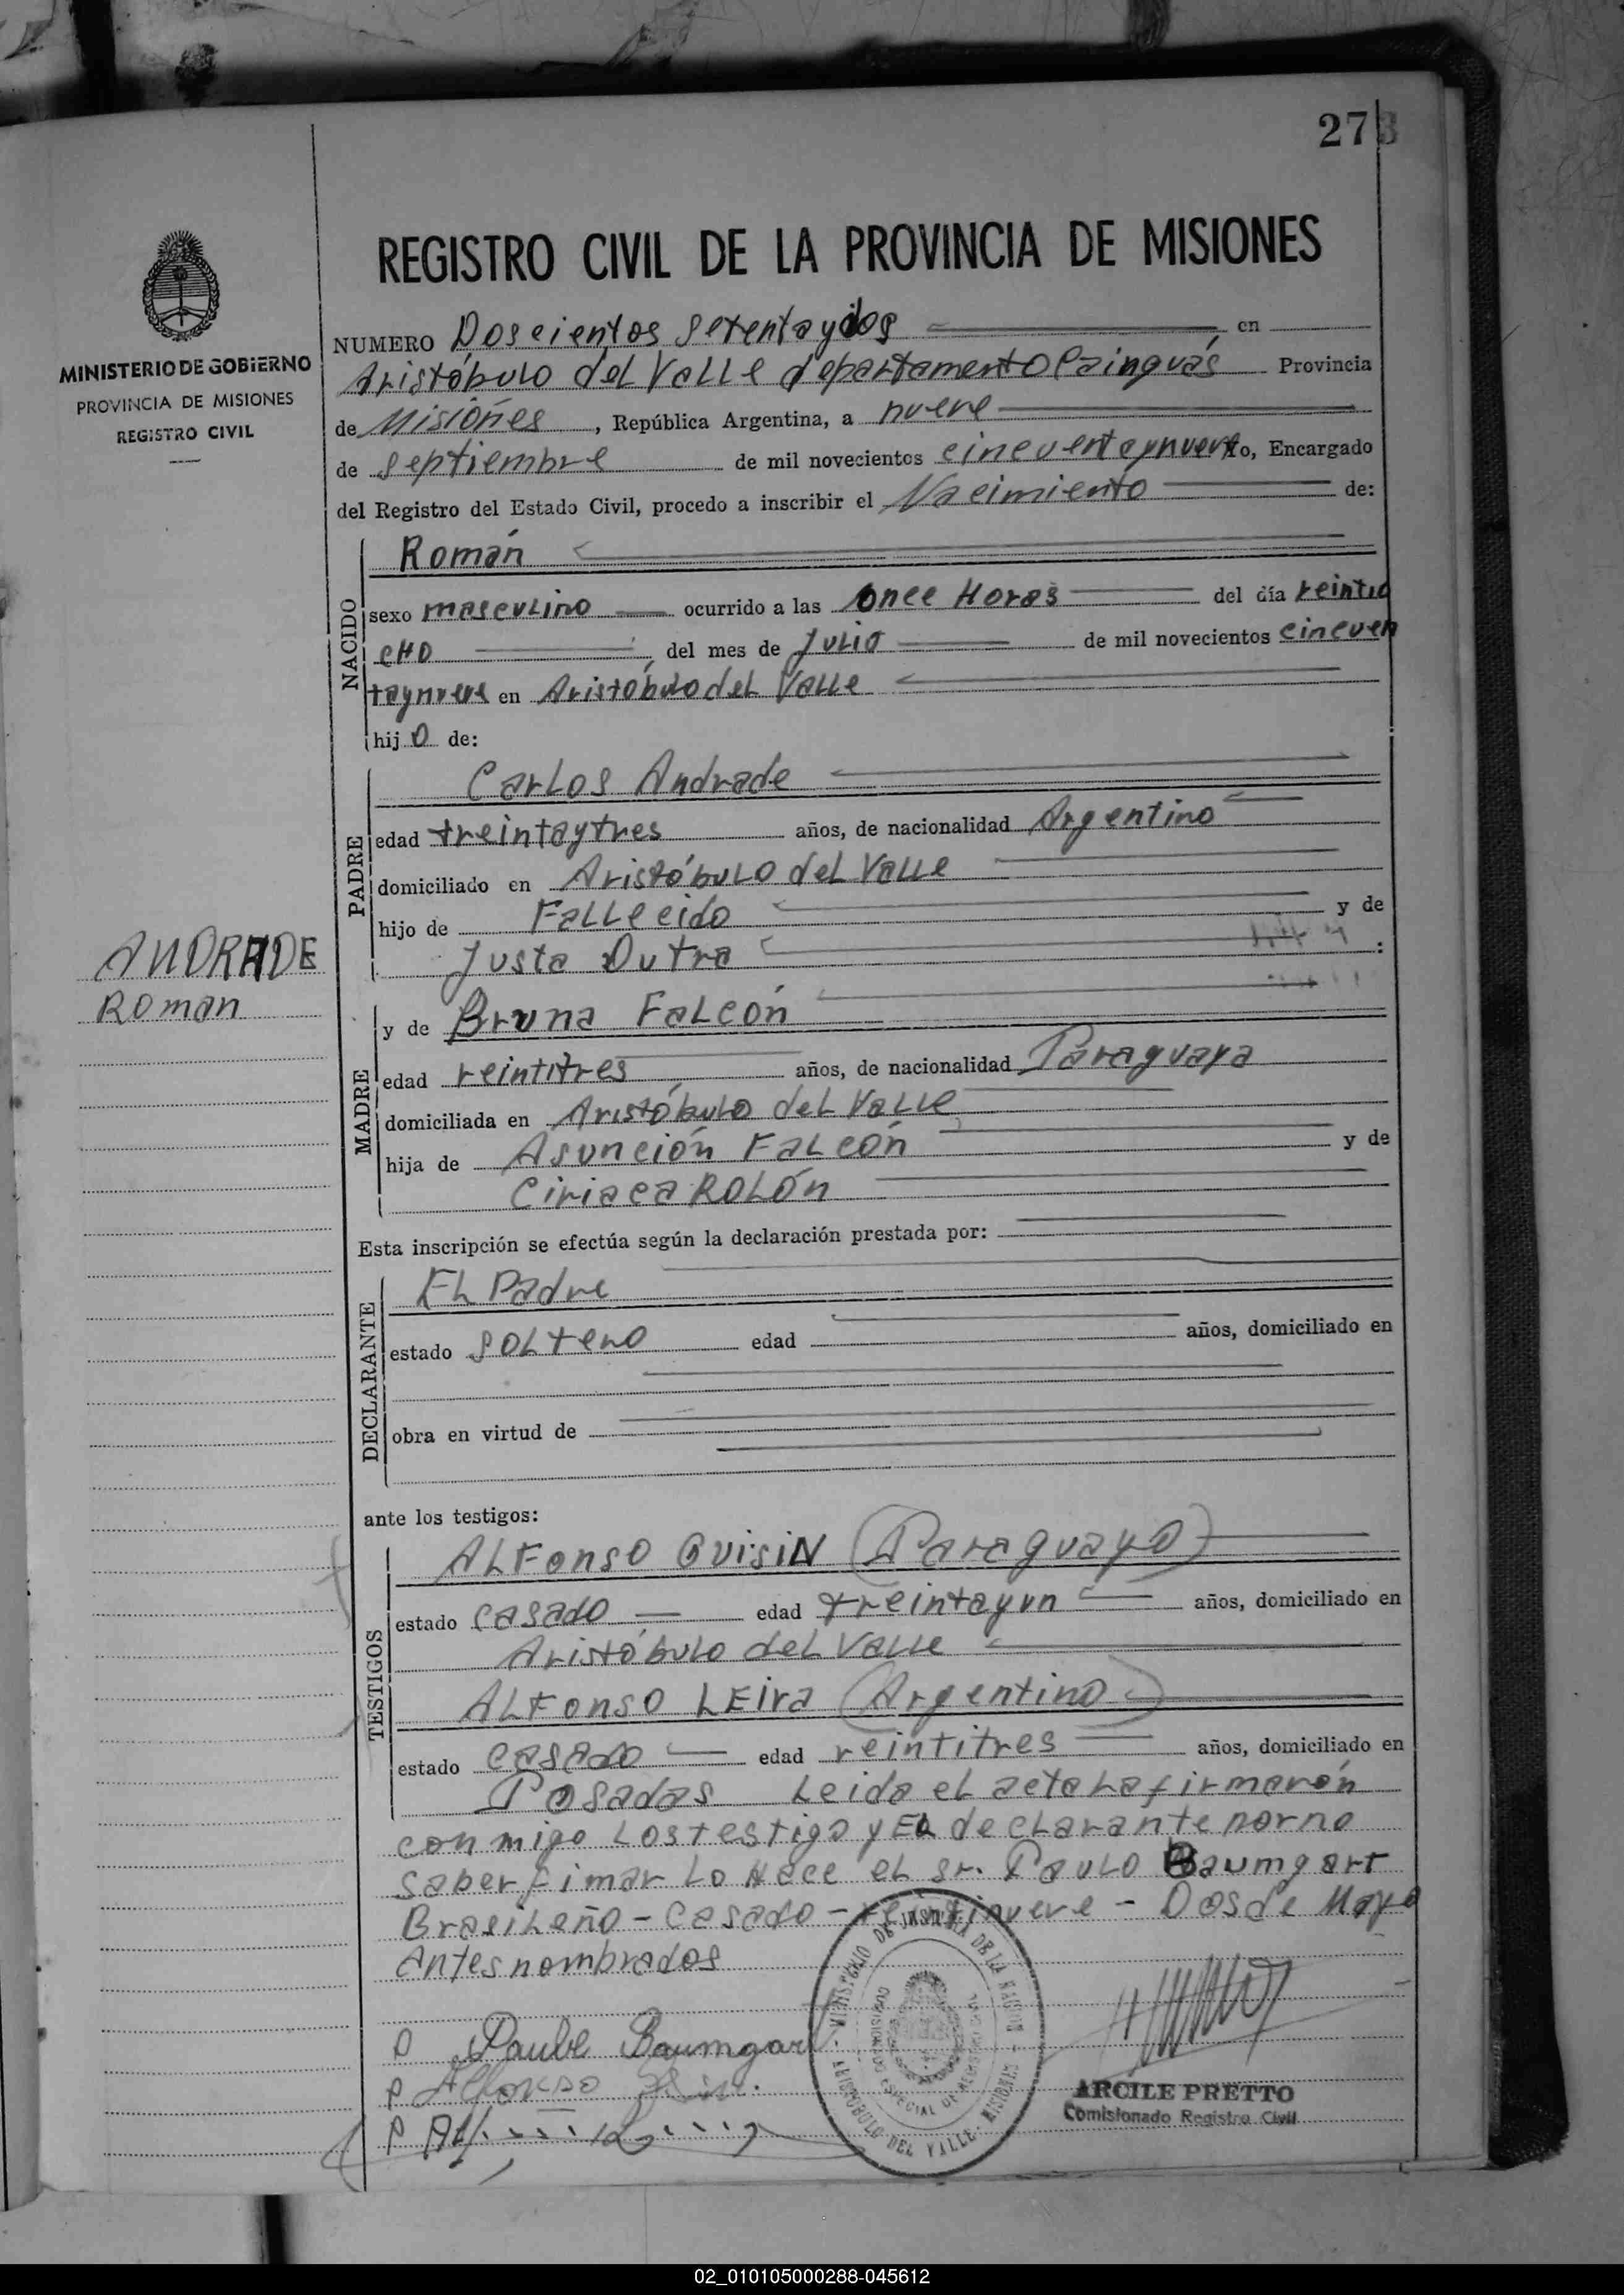 273
REGISTRO CIVIL DE LA PROVINCIA DE MISIONES
MINISTERIO DE GOBIERNO
PROVINCIA DE MISIONES
REGISTRO CIVIL
NUMERO Doscientos setentaydos en
Aristóbulo del Valle departamento Cainguás Provincia
de Misiónes, República Argentina, a nueve
de septiembre de mil novecientos cincuentaynueve yo, Encargado
del Registro del Estado Civil, procedo a inscribir el Nacimiento de:
NACIDO
Román
sexo masculino ocurrido a las once Horas del día veintio
cHo del mes de Julio de mil novecientos cincuen
taynueve en Aristóbulo del Valle
hijo de:
PADRE
Carlos Andrade
edad treintaytres años, de nacionalidad Argentino
domiciliado en Aristóbulo del Valle
hijo de Fallecido y de
Justa Dutra :
ANDRADE
Roman
MADRE
y de Bruna Falcón
edad veintitres años, de nacionalidad Paraguaya
domiciliada en Aristóbulo del Valle
hija de Asunción Falcón y de
Ciriaca Rolón
Esta inscripción se efectúa según la declaración prestada por:
DECLARANTE
El Padre
estado soltero edad años, domiciliado en
obra en virtud de
ante los testigos:
TESTIGOS
Alfonso Guisin (Paraguayo)
estado casado edad treintayun años, domiciliado en
Aristóbulo del Valle
Alfonso Leiva (Argentino)
estado casado edad veintitres años, domiciliado en
Posadas Leida el acta la firmarón
conmigo los testigo y El declarante por no
saber fimar lo Hace el sr. Paulo Baumgart
Brasileño - casado - veintinueve - Dos de Mayo
Antes nombrados
P Paulo Baumgart
P Alfonso
P
MINISTERIO DE JUSTICIA DE LA NACION
COMISIONADO ESPECIAL DE REGISTRO CIVIL
ARISTOBULO DEL VALLE - MISIONES
ARCILE PRETTO
Comisionado Registro Civil
02_010105000288-045612